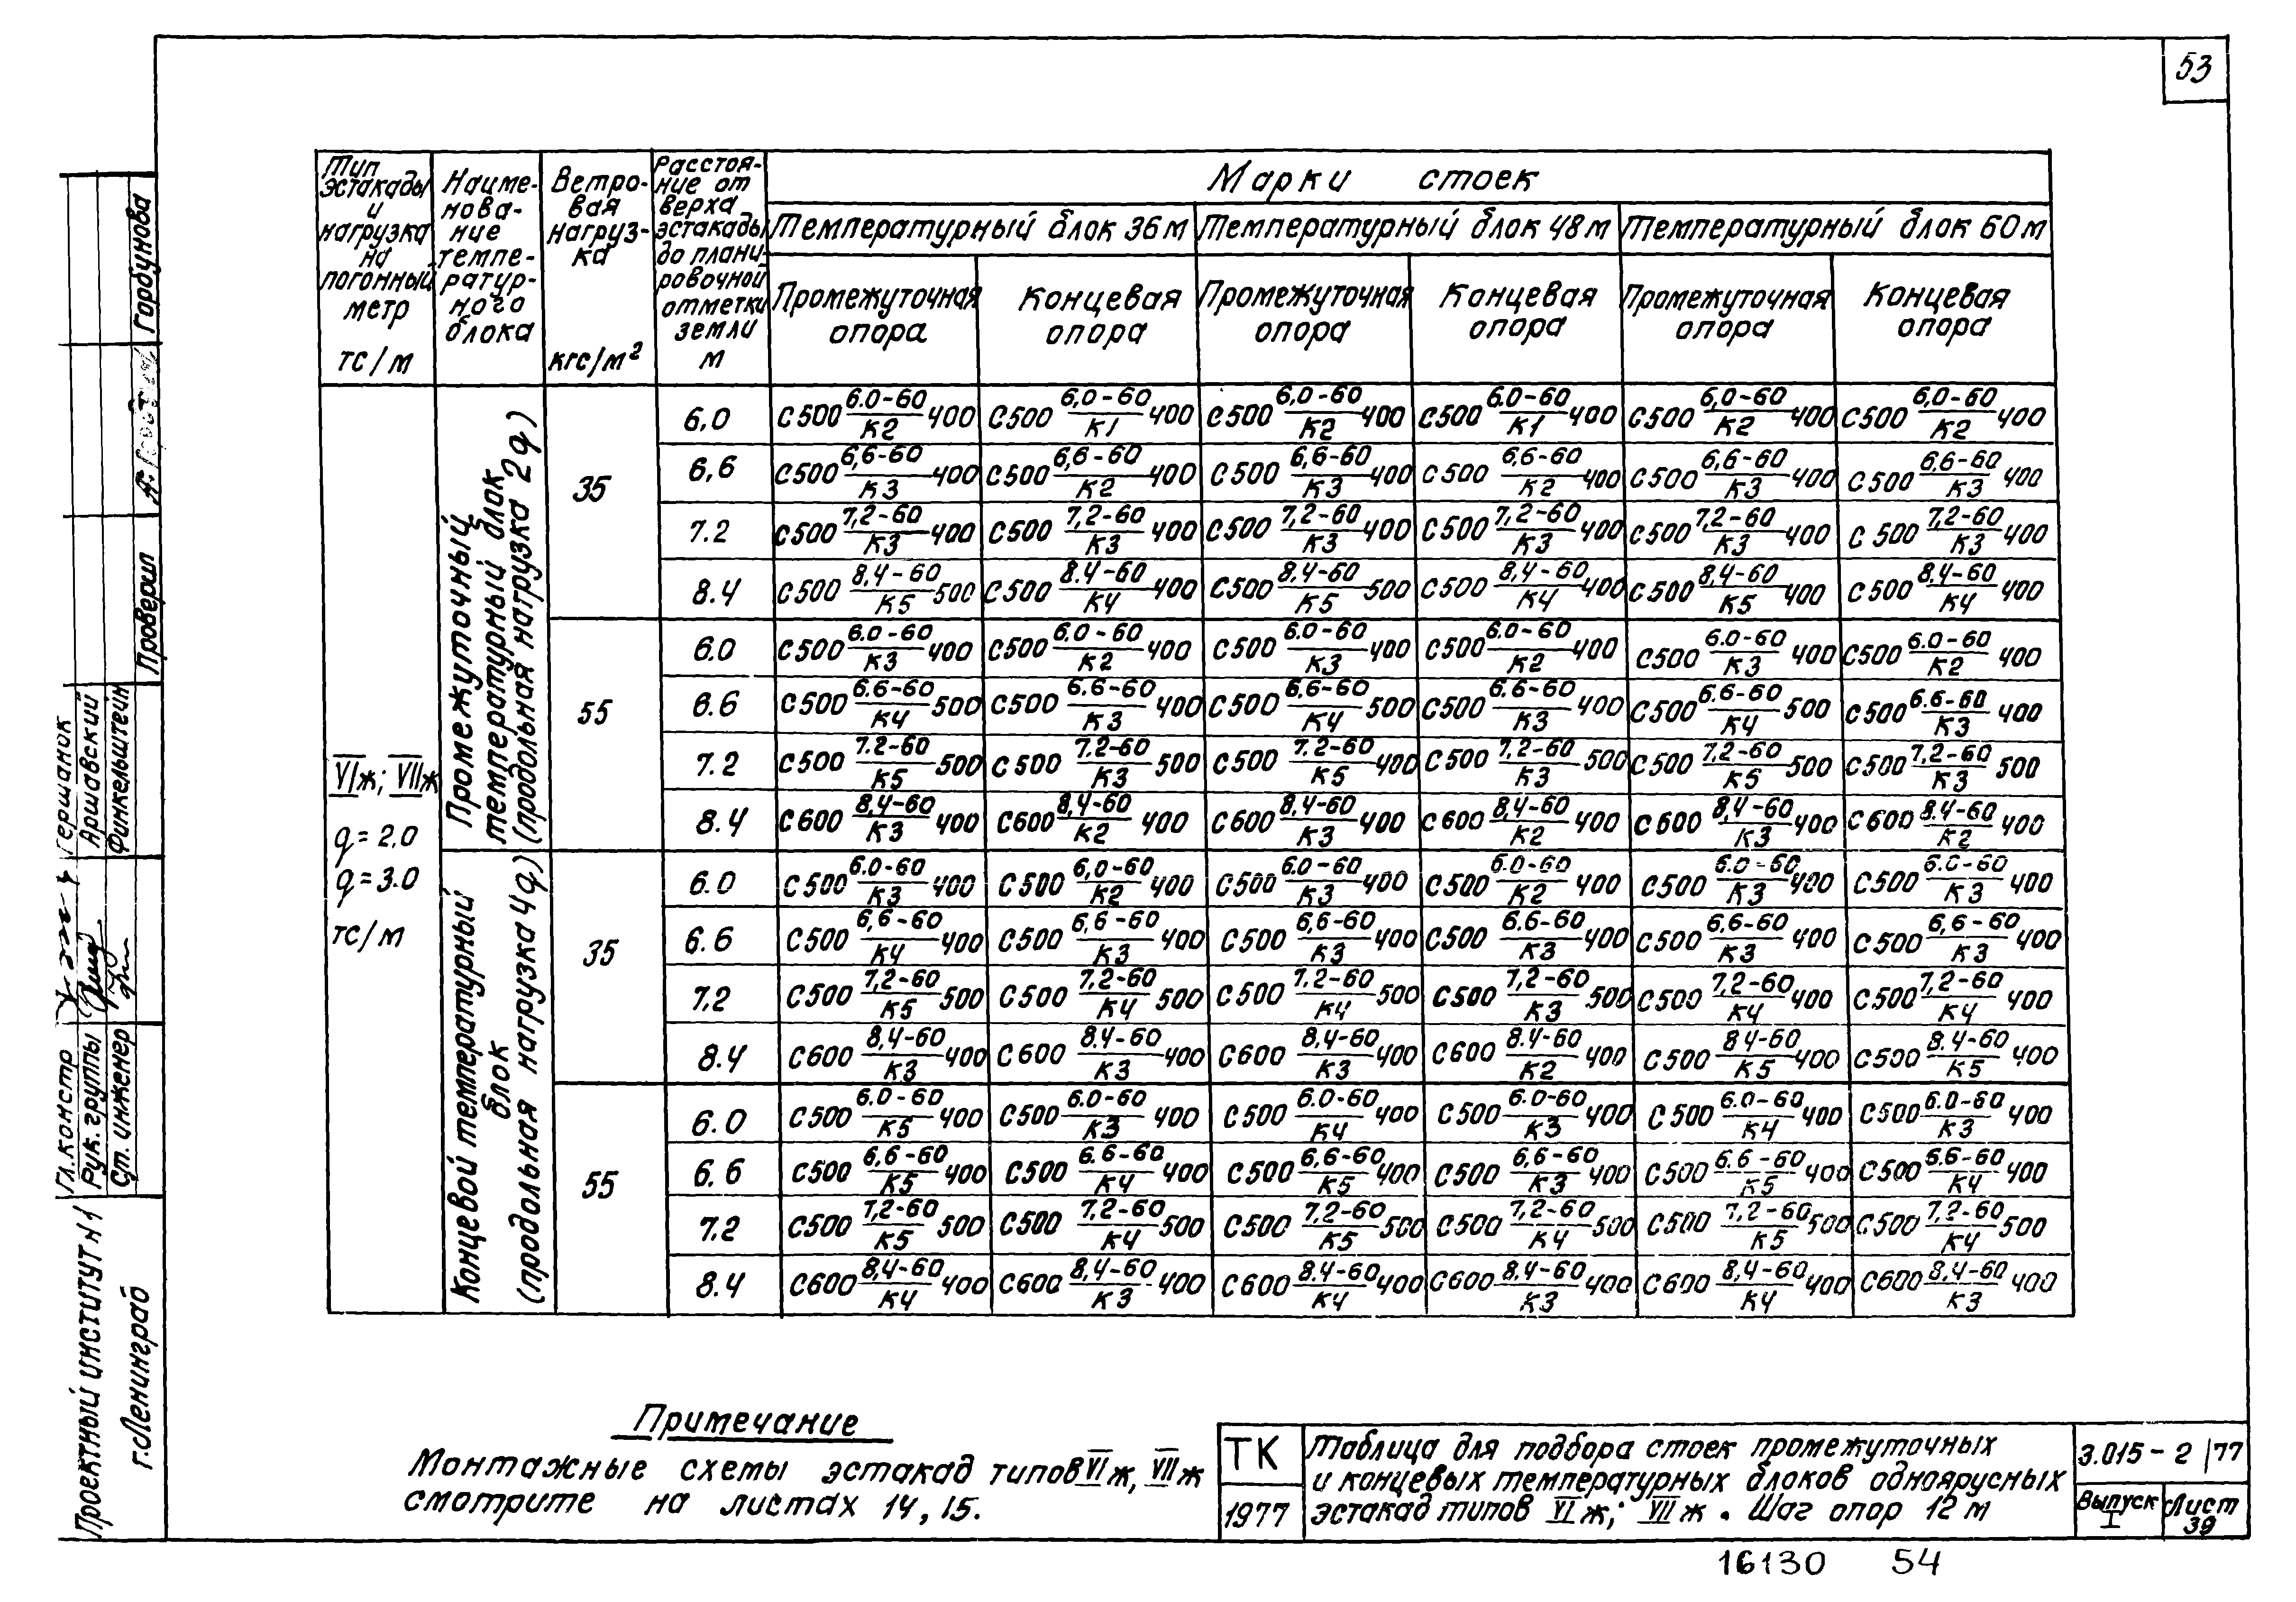 53
Тип эстакады и нагрузка на погонный метр тс/м
Наименование температурного блока
Ветровая нагрузка кгс/м²
Расстояние от верха эстакады до планировочной отметки земли м
Марки стоек
Температурный блок 36м
Температурный блок 48м
Температурный блок 60м
Промежуточная опора
Концевая опора
Промежуточная опора
Концевая опора
Промежуточная опора
Концевая опора
VIж; VIIж
q=2,0
q=3.0
тс/м
Промежуточный температурный блок (продольная нагрузка 2q)
35
6,0 С500 6.0-60/К2 400 С500 6,0-60/К1 400 С500 6,0-60/К2 400 С500 6.0-60/К1 400 С500 6,0-60/К2 400 С500 6,0-60/К2 400
6,6 С500 6,6-60/К3 400 С500 6,6-60/К2 400 С500 6,6-60/К3 400 С500 6,6-60/К2 400 С500 6,6-60/К3 400 С500 6,6-60/К3 400
7.2 С500 7,2-60/К3 400 С500 7,2-60/К3 400 С500 7,2-60/К3 400 С500 7,2-60/К3 400 С500 7,2-60/К3 400 С500 7,2-60/К3 400
8.4 С500 8,4-60/К5 500 С500 8.4-60/К4 400 С500 8,4-60/К5 500 С500 8,4-60/К4 400 С500 8,4-60/К5 400 С500 8,4-60/К4 400
55
6.0 С500 6.0-60/К3 400 С500 6.0-60/К2 400 С500 6.0-60/К3 400 С500 6.0-60/К2 400 С500 6.0-60/К3 400 С500 6.0-60/К2 400
6.6 С500 6.6-60/К4 500 С500 6.6-60/К3 400 С500 6.6-60/К4 500 С500 6.6-60/К3 400 С500 6.6-60/К4 500 С500 6.6-60/К3 400
7.2 С500 7.2-60/К5 500 С500 7.2-60/К3 500 С500 7.2-60/К5 400 С500 7,2-60/К3 500 С500 7,2-60/К5 500 С500 7,2-60/К3 500
8.4 С600 8,4-60/К3 400 С600 8,4-60/К2 400 С600 8,4-60/К3 400 С600 8,4-60/К2 400 С600 8,4-60/К3 400 С600 8.4-60/К2 400
Концевой температурный блок (продольная нагрузка 4q)
35
6.0 С500 6.0-60/К3 400 С500 6,0-60/К2 400 С500 6.0-60/К3 400 С500 6.0-60/К2 400 С500 6.0-60/К3 400 С500 6.0-60/К3 400
6.6 С500 6,6-60/К4 400 С500 6,6-60/К3 400 С500 6,6-60/К3 400 С500 6.6-60/К3 400 С500 6.6-60/К3 400 С500 6,6-60/К3 400
7,2 С500 7,2-60/К5 500 С500 7,2-60/К4 500 С500 7.2-60/К4 500 С500 7,2-60/К3 500 С500 7,2-60/К4 400 С500 7,2-60/К4 400
8.4 С600 8,4-60/К3 400 С600 8.4-60/К3 400 С600 8,4-60/К3 400 С600 8.4-60/К2 400 С500 8 4-60/К5 400 С500 8.4-60/К5 400
55
6.0 С500 6.0-60/К5 400 С500 6.0-60/К3 400 С500 6.0-60/К4 400 С500 6.0-60/К3 400 С500 6.0-60/К4 400 С500 6.0-60/К3 400
6,6 С500 6,6-60/К5 400 С500 6.6-60/К4 400 С500 6,6-60/К5 400 С500 6,6-60/К3 400 С500 6.6-60/К5 400 С500 6.6-60/К4 400
7,2 С500 7,2-60/К5 500 С500 7,2-60/К4 500 С500 7,2-60/К5 500 С500 7,2-60/К4 500 С500 7,2-60/К5 500 С500 7,2-60/К4 500
8.4 С600 8,4-60/К4 400 С600 8,4-60/К3 400 С600 8.4-60/К4 400 С600 8,4-60/К3 400 С600 8,4-60/К4 400 С600 8,4-60/К3 400
Примечание
Монтажные схемы эстакад типов VIж, VIIж
смотрите на листах 14, 15.
ТК
1977
Таблица для подбора стоек промежуточных
и концевых температурных блоков одноярусных
эстакад типов VIж; VIIж. Шаг опор 12м
3.015-2/77
Выпуск I
Лист 39
16130 54
Проектный институт №1
г.Ленинград
Гл.констр Гершанок
Рук. группы Аршавский
Ст. инженер Финкельштейн
Проверил Горбунова